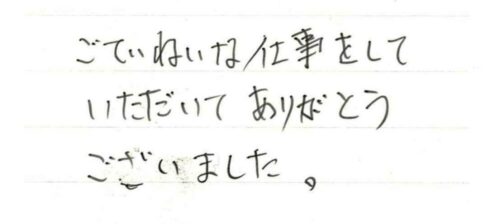 ごていねいな仕事をして
いただいて ありがとう
ございました。